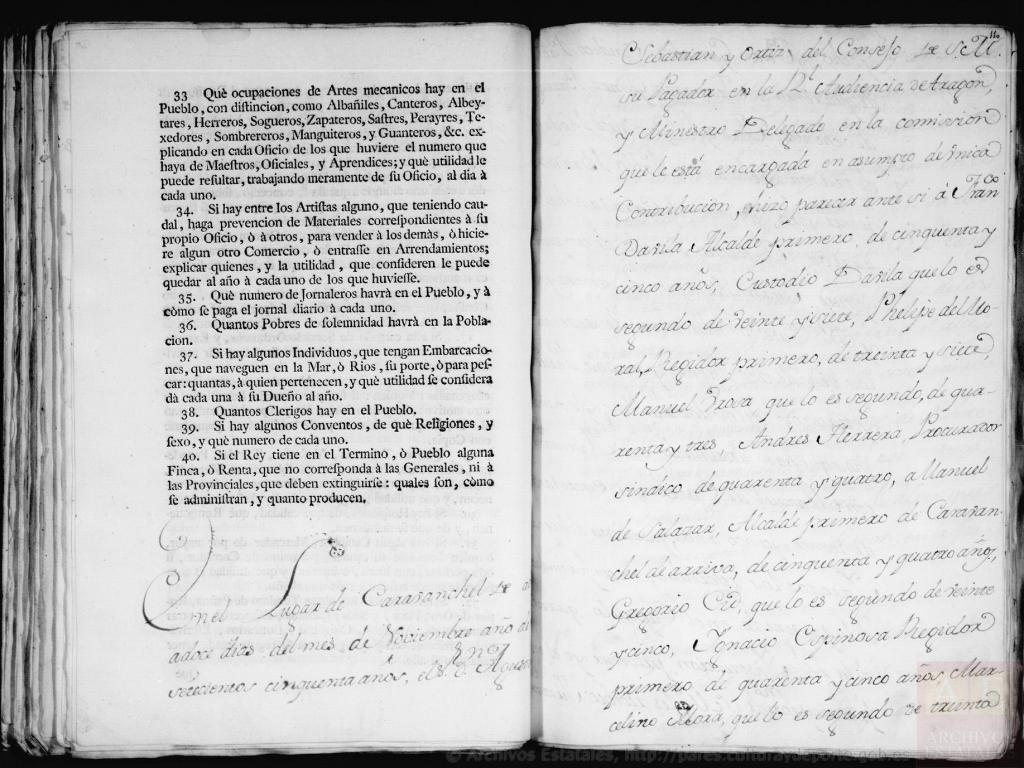 33 Què ocupaciones de Artes mecanicos hay en el
Pueblo, con distincion, como Albañiles, Canteros, Albey-
tares, Herreros, Sogueros, Zapateros, Sastres, Perayres, Te-
xedores, Sombrereros, Manguiteros, y Guanteros, &c. ex-
plicando en cada Oficio de los que huviere el numero que
haya de Maestros, Oficiales, y Aprendices; y què utilidad le
puede resultar, trabajando meramente de su Oficio, al dia à
cada uno.
34. Si hay entre los Artistas alguno, que teniendo cau-
dal, haga prevencion de Materiales correspondientes à su
propio Oficio, ò à otros, para vender à los demàs, ò hicie-
re algun otro Comercio, ò entrasse en Arrendamientos;
explicar quienes, y la utilidad, que consideren le puede
quedar al año à cada uno de los que huviesse.
35. Què numero de Jornaleros havrà en el Pueblo, y à
còmo se paga el jornal diario à cada uno.
36. Quantos Pobres de solemnidad havrà en la Pobla-
cion.
37. Si hay algunos Individuos, que tengan Embarcacio-
nes, que naveguen en la Mar, ò Rios, su porte, ò para pes-
car: quantas, à quien pertenecen, y què utilidad se considera
dà cada una à su Dueño al año.
38. Quantos Clerigos hay en el Pueblo.
39. Si hay algunos Conventos, de què Religiones, y
sexo, y què numero de cada uno.
40. Si el Rey tiene en el Termino, ò Pueblo alguna
Finca, ò Renta, que no corresponda à las Generales, ni à
las Provinciales, que deben extinguirse: quales son, còmo
se administran, y quanto producen.
En el Lugar de Carabanchel de
a doce dias del mes de Noviembre año de
setecientos cinquenta años, el S.r D.n
110
Sebastian y Ortiz del Consejo de S. M.
su Pagador en la R.l Audiencia de Aragon,
y Ministro Delegado en la comission
que le està encargada en asumpto de Vnica
Contribucion, hizo parecer ante si à Fran.co
Davila Alcalde primero, de cinquenta y
cinco años, Custodio Davila que lo es
segundo de veinte y siete, Phelipe del Mo-
ral, Regidor primero, de treinta y siete,
Manuel que lo es segundo, de qua-
renta y tres, Andres Herrera, Procurador
sindico de quarenta y quatro, a Manuel
de Salazar, Alcalde primero de Caraban-
chel de arriva, de cinquenta y quatro años,
Gregorio que lo es segundo de veinte
y cinco, Ignacio Espinosa Regidor
primero de quarenta y cinco años, Mar-
celino Mora, que lo es segundo de treinta
© Archivos Estatales, http://pares.culturaydeporte.gob.es
ARCHIVOS
ESTATALES